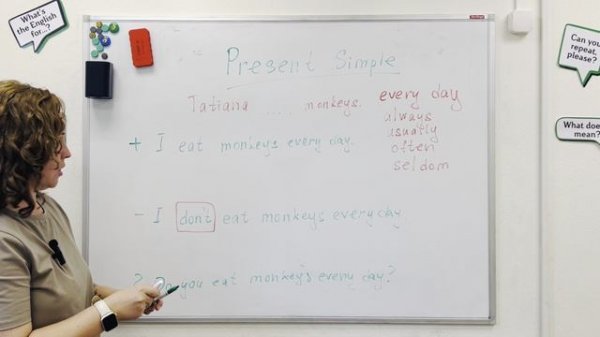 What's
the English
for...?
Present Simple
Tatiana .... monkeys. every day
always
usually
often
seldom
+ I eat monkeys every day.
- I don't eat monkeys every day
? Do you eat monkeys every day?
Can you
repeat,
please?
What doe
mean?